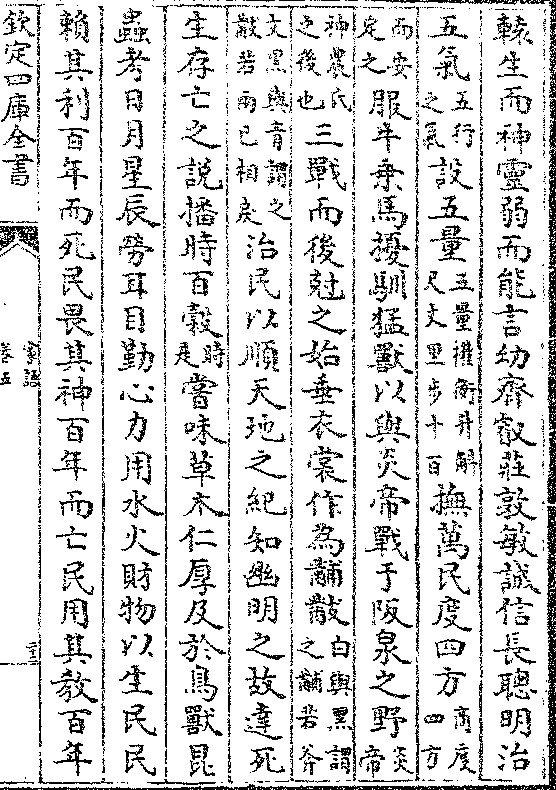 轅生而神靈弱而能言幼齊叡莊敦敏誠信長聰明治
五氣五行之氣設五量五量權衡升斛尺丈里步十百撫萬民度四方商度四方
而安定之服牛乗馬擾馴猛獸以與炎帝戰于阪泉之野炎帝
神農氏之後也三戰而後尅之始垂衣裳作為黼黻白與黒謂之黼若斧
文黒與青謂之黻若兩已相戾治民以順天地之紀知幽明之故達死
生存亡之説播時百榖時是嘗味草木仁厚及於鳥獸昆
蟲考日月星辰勞耳目勤心力用水火財物以生民民
賴其利百年而死民畏其神百年而亡民用其教百年
欽定四庫全書
家語
卷五